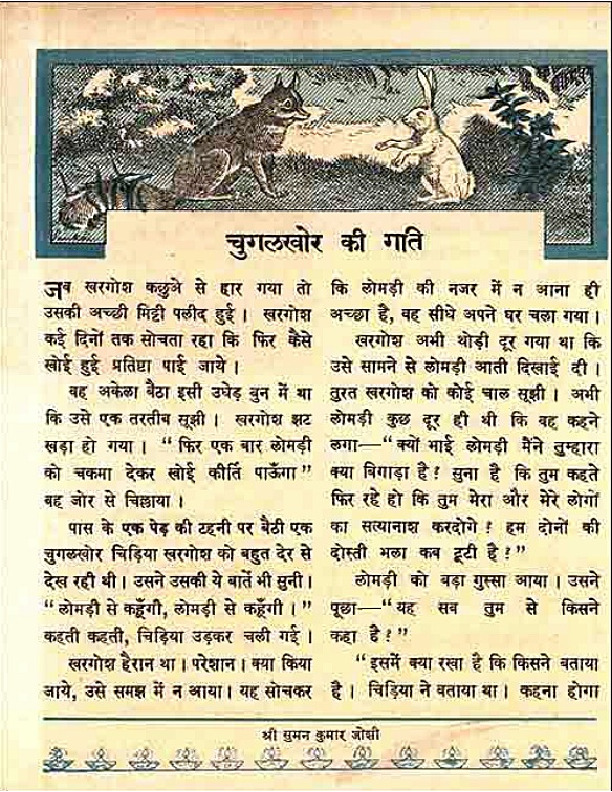 चुगलखोर की गति
जब खरगोश कछुअे से हार गया तो
उसकी अच्छी मिट्टी पलीद हुई। खरगोश
कई दिनों तक सोचता रहा कि फिर कैसे
खोई हुई प्रतिष्टा पाई जाये।
वह अकेला बैठा इसी उधेड़ बुन में था
कि उसे एक तरतीब सूझी। खरगोश झट
खड़ा हो गया। “फिर एक बार लोमड़ी
को चकमा देकर खोई कीर्ति पाऊँगा”
वह जोर से चिल्लाया।
पास के एक पेड़ की टहनी पर बैठी एक
चुगलखोर चिड़िया खरगोश को बहुत देर से
देख रही थी। उसने उसकी ये बातें भी सुनी।
“लोमड़ी से कहूँगी, लोमड़ी से कहूँगी।”
कहती कहती, चिड़िया उड़कर चली गई।
खरगोश हैरान था। परेशान। क्या किया
जाये, उसे समझ में न आया। यह सोचकर
कि लोमड़ी की नजर में न आना ही
अच्छा है, वह सीधे अपने घर चला गया।
खरगोश अभी थोड़ी दूर गया था कि
उसे सामने से लोमड़ी आती दिखाई दी।
तुरत खरगोश को कोई चाल सूझी। अभी
लोमड़ी कुछ दूर ही थी कि वह कहने
लगा—“क्यों भाई लोमड़ी मैंने तुम्हारा
क्या बिगाड़ा है? सुना है कि तुम कहते
फिर रहे हो कि तुम मेरा और मेरे लोगों
का सत्यानाश करदोगे? हम दोनों की
दोस्ती भला कब टूटी है?”
लोमड़ी को बड़ा गुस्सा आया। उसने
पूछा—“यह सब तुम से किसने
कहा है?”
“इसमें क्या रखा है कि किसने बताया
है। चिड़िया ने बताया था। कहना होगा
श्री सुमन कुमार जोशी